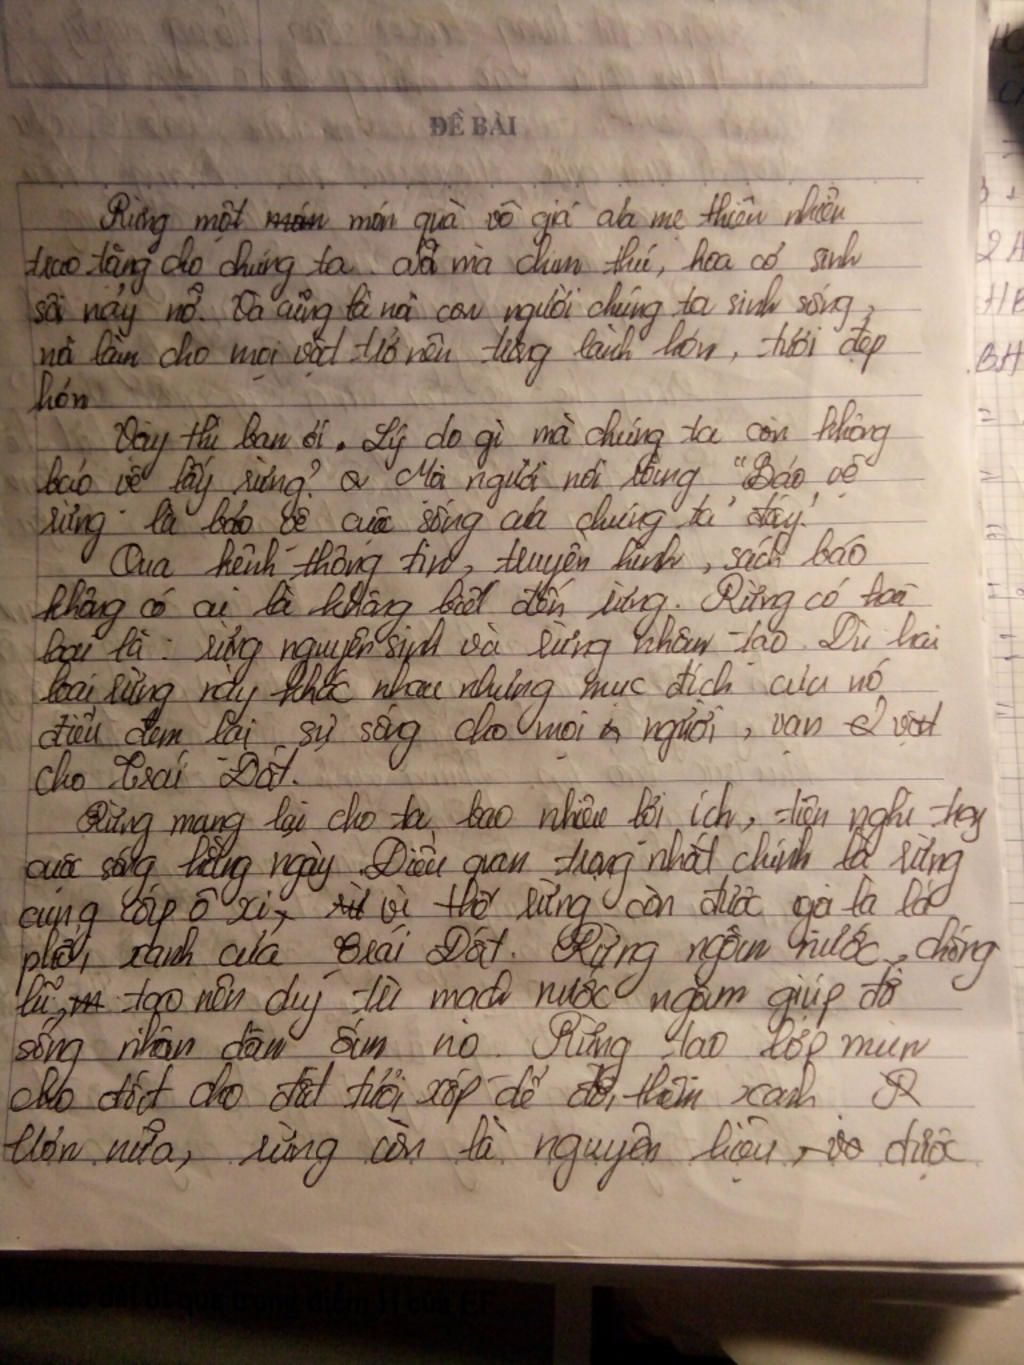 ĐỀ BÀI
Rừng một món món quà vô giá của mẹ thiên nhiên
trao tặng cho chúng ta. mà chim thú, hoa cỏ sinh
sôi nảy nở. Và cũng là nơi con người chúng ta sinh sống,
nó làm cho mọi vật trở nên trong lành hơn, tươi đẹp
hơn
Vậy thì bạn ơi. Lý do gì mà chúng ta còn không
bảo vệ lấy rừng? Mọi người nói rằng "Bảo vệ
rừng là bảo vệ cuộc sống của chúng ta" đấy!
Qua kênh thông tin, truyền hình, sách báo
không có ai là không biết đến rừng. Rừng có hai
loại là: rừng nguyên sinh và rừng nhân tạo. Dù hai
loại rừng này khác nhau nhưng mục đích của nó
điều đem lại sự sống cho mọi người, vạn vật
cho Trái Đất.
Rừng mang lại cho ta bao nhiêu lợi ích, tiện nghi
cuộc sống hằng ngày. Điều quan trọng nhất chính là rừng
cung cấp ô xi, vì thế rừng còn được gọi là lá
phổi xanh của Trái Đất. Rừng ngăn nước, chống
lũ, tạo nên duy trì mạch nước ngầm giúp đỡ
sống nhân dân ấm no. Rừng tạo lớp mùn
cho đất cho đất tươi xốp để đồi thêm xanh
Hơn nữa, rừng còn là nguyên liệu, được